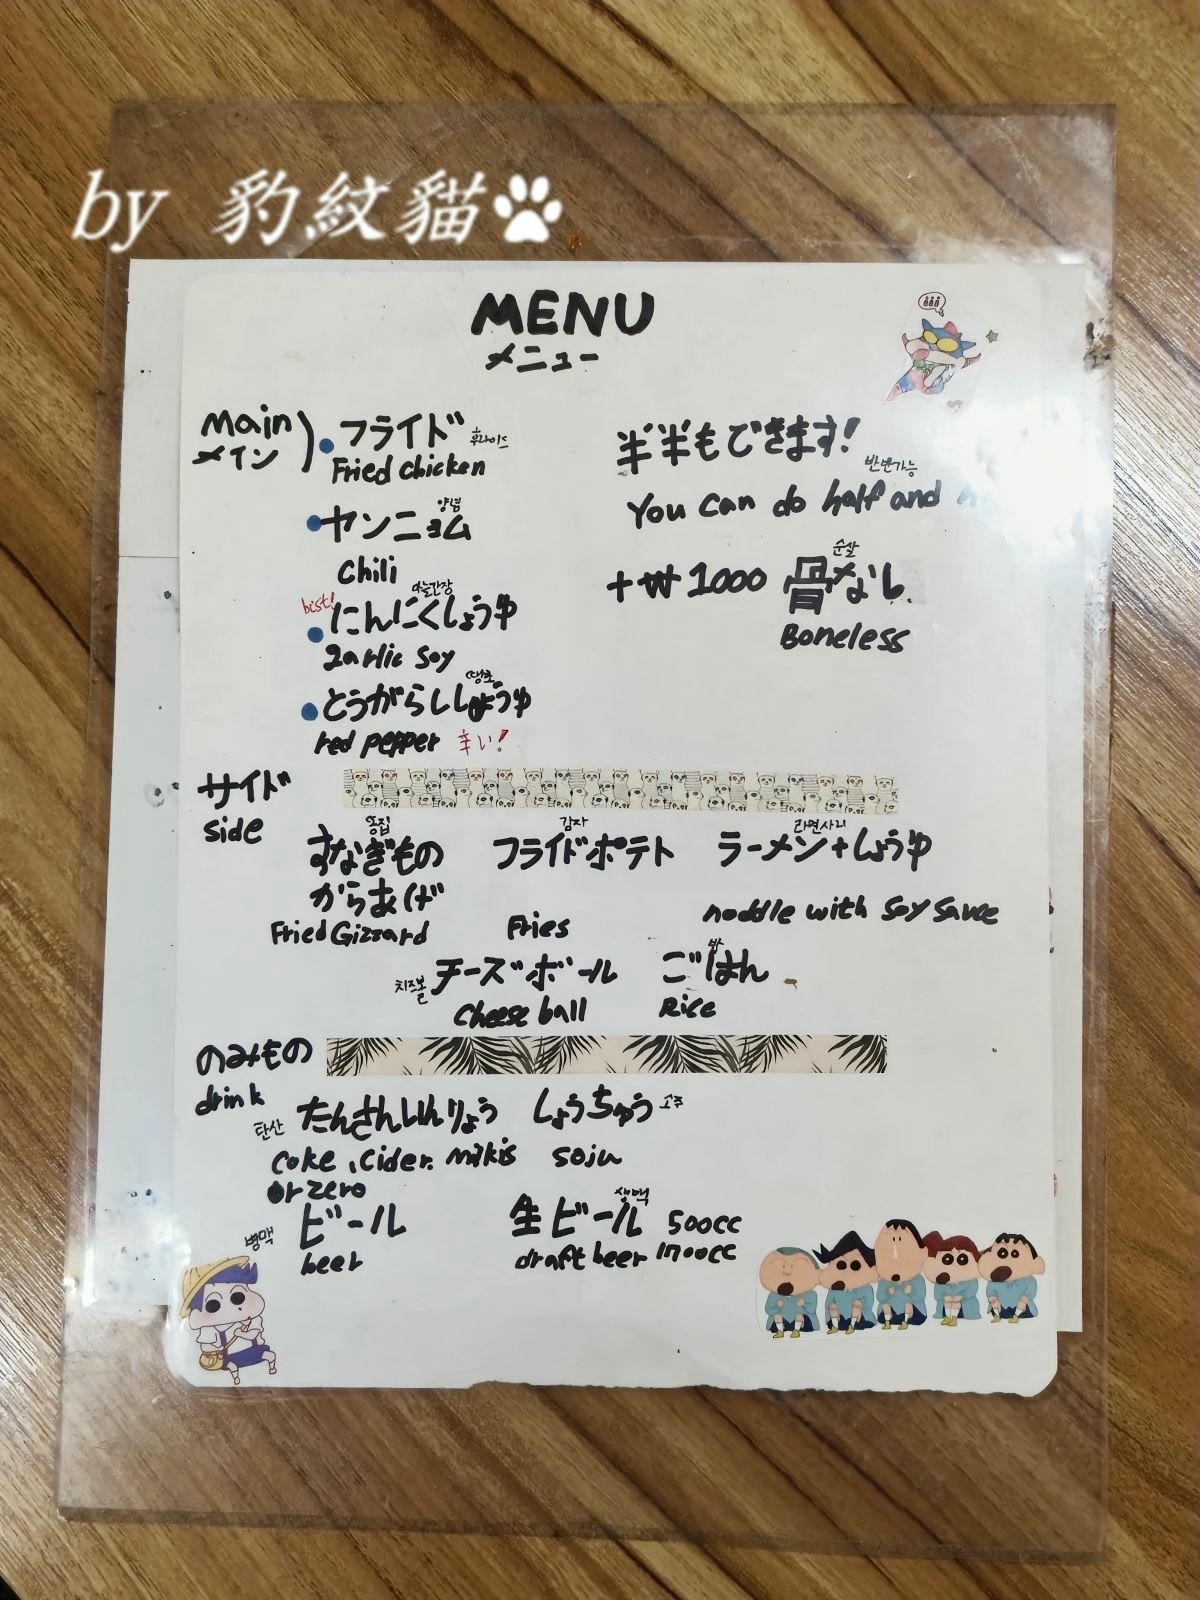 by 豹紋貓
MENU
メニュー
Main
メイン
フライド 후라이드
Fried chicken
半半もできます!
반반가능
You can do half and
양념
ヤンニョム
chili
순살
+₩1000 骨なし
Boneless
마늘간장
best!
にんにくしょうゆ
garlic soy
땡초
とうがらししょうゆ
red pepper 辛い!
サイド
side
똥집
すなぎもの
からあげ
Fried Gizzard
감자
フライドポテト
Fries
라면사리
ラーメン+しょうゆ
noddle with soy sauce
치즈볼 チーズボール
cheese ball
밥
ごはん
Rice
のみもの
drink
탄산 たんさんいんりょう
coke, cider. milkis
or zero
しょうちゅう 소주
soju
병맥 ビール
beer
생맥
生ビール 500cc
draft beer 1700cc